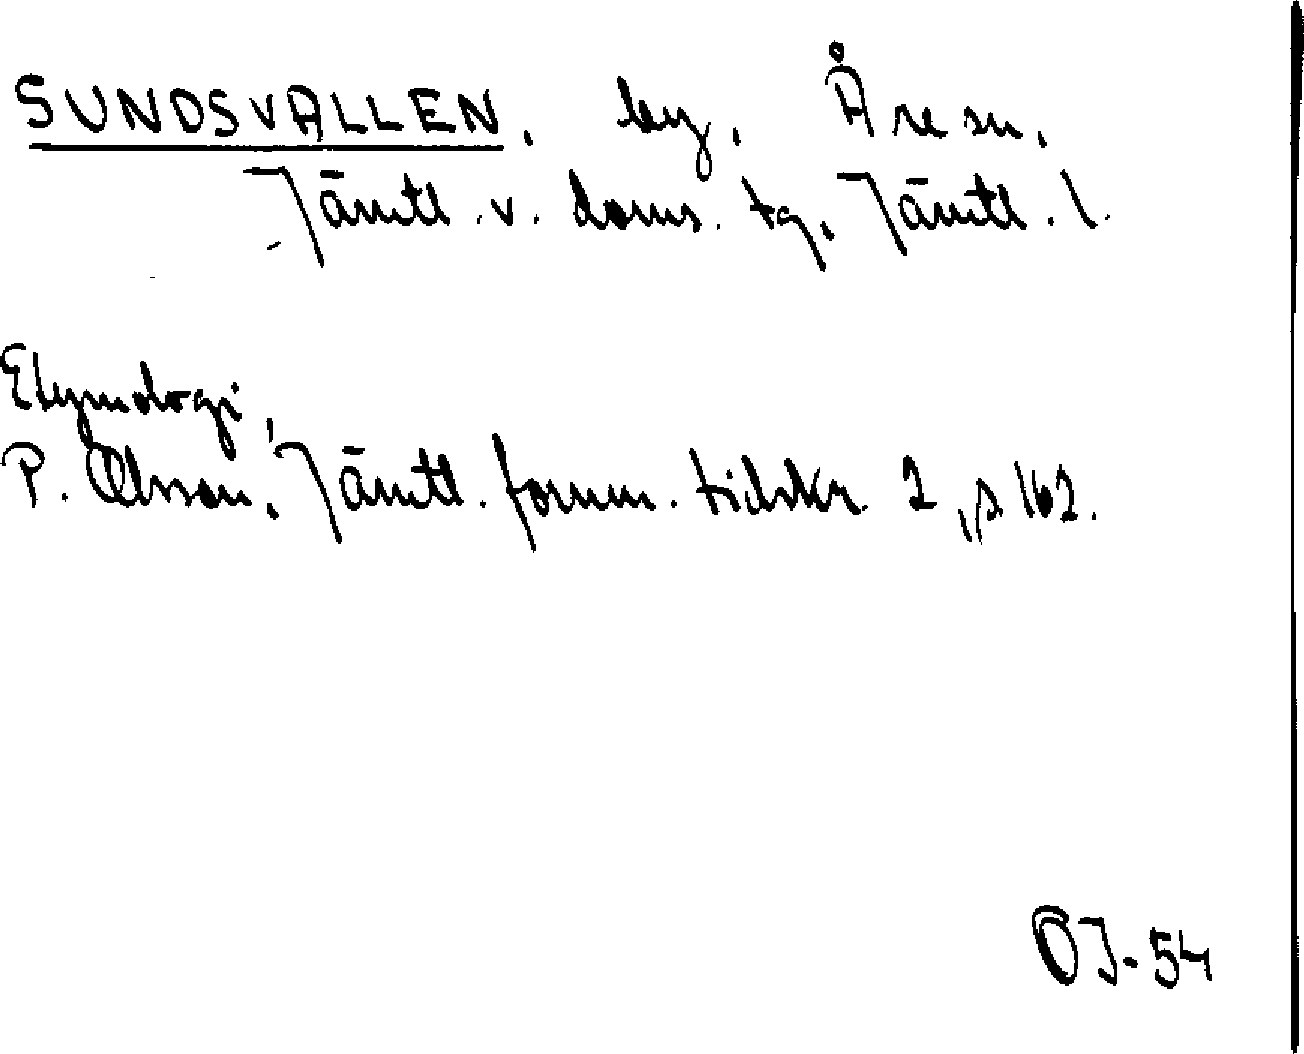 SUNDSVALLEN, by, Åre sn,
Jämtl. v. doms. tg, Jämtl. l.
Etymologi,
P. Olsson, Jämtl. fornm. tidskr. 2, s 162.
OJ-54